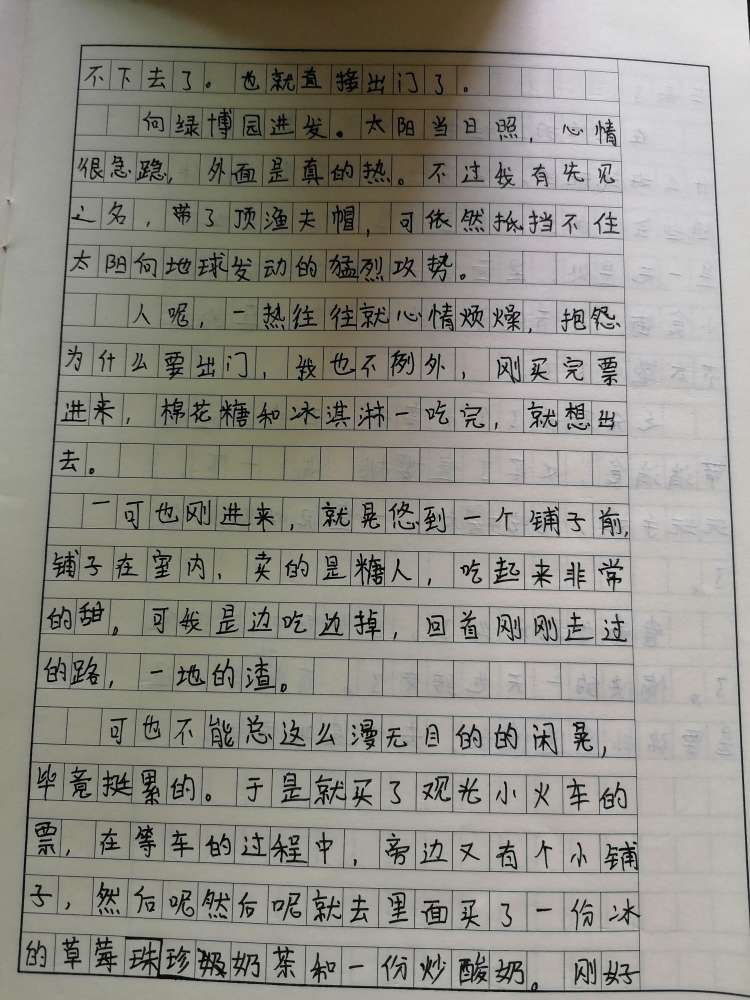 不下去了。也就直接出门了。
向绿博园进发。太阳当日照，心情
很急隐，外面是真的热。不过我有先见
之名，带了顶渔夫帽，可依然抵挡不住
太阳向地球发动的猛烈攻势。
人呢，一热往往就心情烦燥，抱怨
为什么要出门，我也不例外，刚买完票
进来，棉花糖和冰淇淋一吃完，就想出
去。
可也刚进来，就晃悠到一个铺子前，
铺子在室内，卖的是糖人，吃起来非常
的甜。可我是边吃边掉，回首刚刚走过
的路，一地的渣。
可也不能总这么漫无目的的闲晃，
毕竟挺累的。于是就买了观光小火车的
票，在等车的过程中，旁边又有个小铺
子，然后呢然后呢就去里面买了一份冰
的草莓珠珍奶茶和一份炒酸奶。刚好